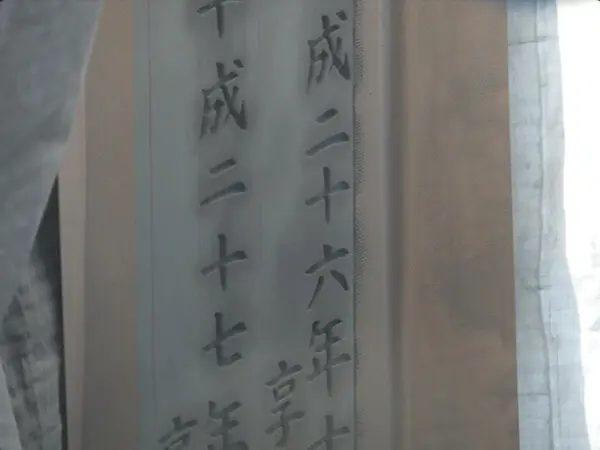 成二十六年
享
平成二十七年
享